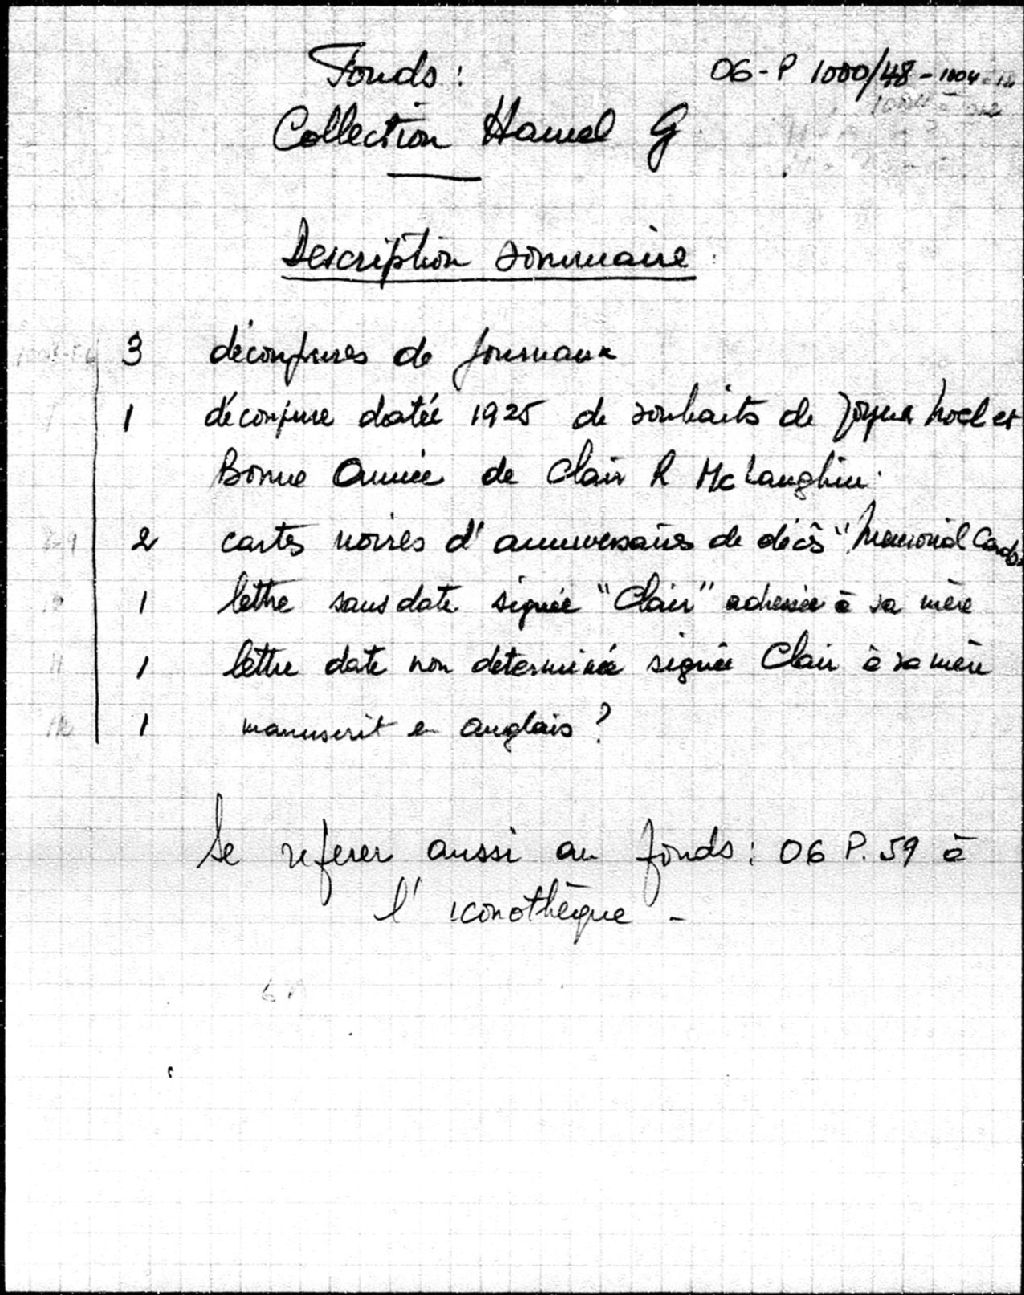 Fonds : 06-P 1000/48-1004-12
Collection Hamel G
Description sommaire
3 découpures de journaux
1 découpure datée 1925 de souhaits de Joyeux Noel et
Bonne Année de Clair R McLaughlin.
2 cartes noires d'anniversaires de décès "Memorial Cards
1 lettre sans date signée "Clair" adressée à sa mère
11 1 lettre date non determinée signée Clair à sa mère
1 manuscrit en anglais ?
Se referer aussi au fonds : 06 P. 59 à
l'iconothèque -